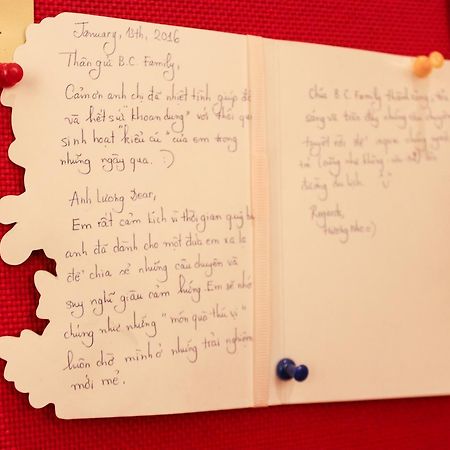 January, 13th, 2016
Thân gửi B.C. Family,
Cảm ơn anh chị đã nhiệt tình giúp đỡ
và hết sức "khoan dung" với thói quen
sinh hoạt "kiểu cú" của em trong
những ngày qua. :)
Anh Lương Dear,
Em rất cảm kích vì thời gian quý báu
anh đã dành cho một đứa em xa lạ
để chia sẻ những câu chuyện và
suy nghĩ giàu cảm hứng. Em sẽ nhớ
chúng như những "món quà thú vị"
luôn chờ mình ở những trải nghiệm
mới mẻ.
Chúc B.C. Family thành công,
sáng và tràn đầy những câu chuyện
tuyệt vời để người
ta cũng như không
đường du lịch.
Regards,